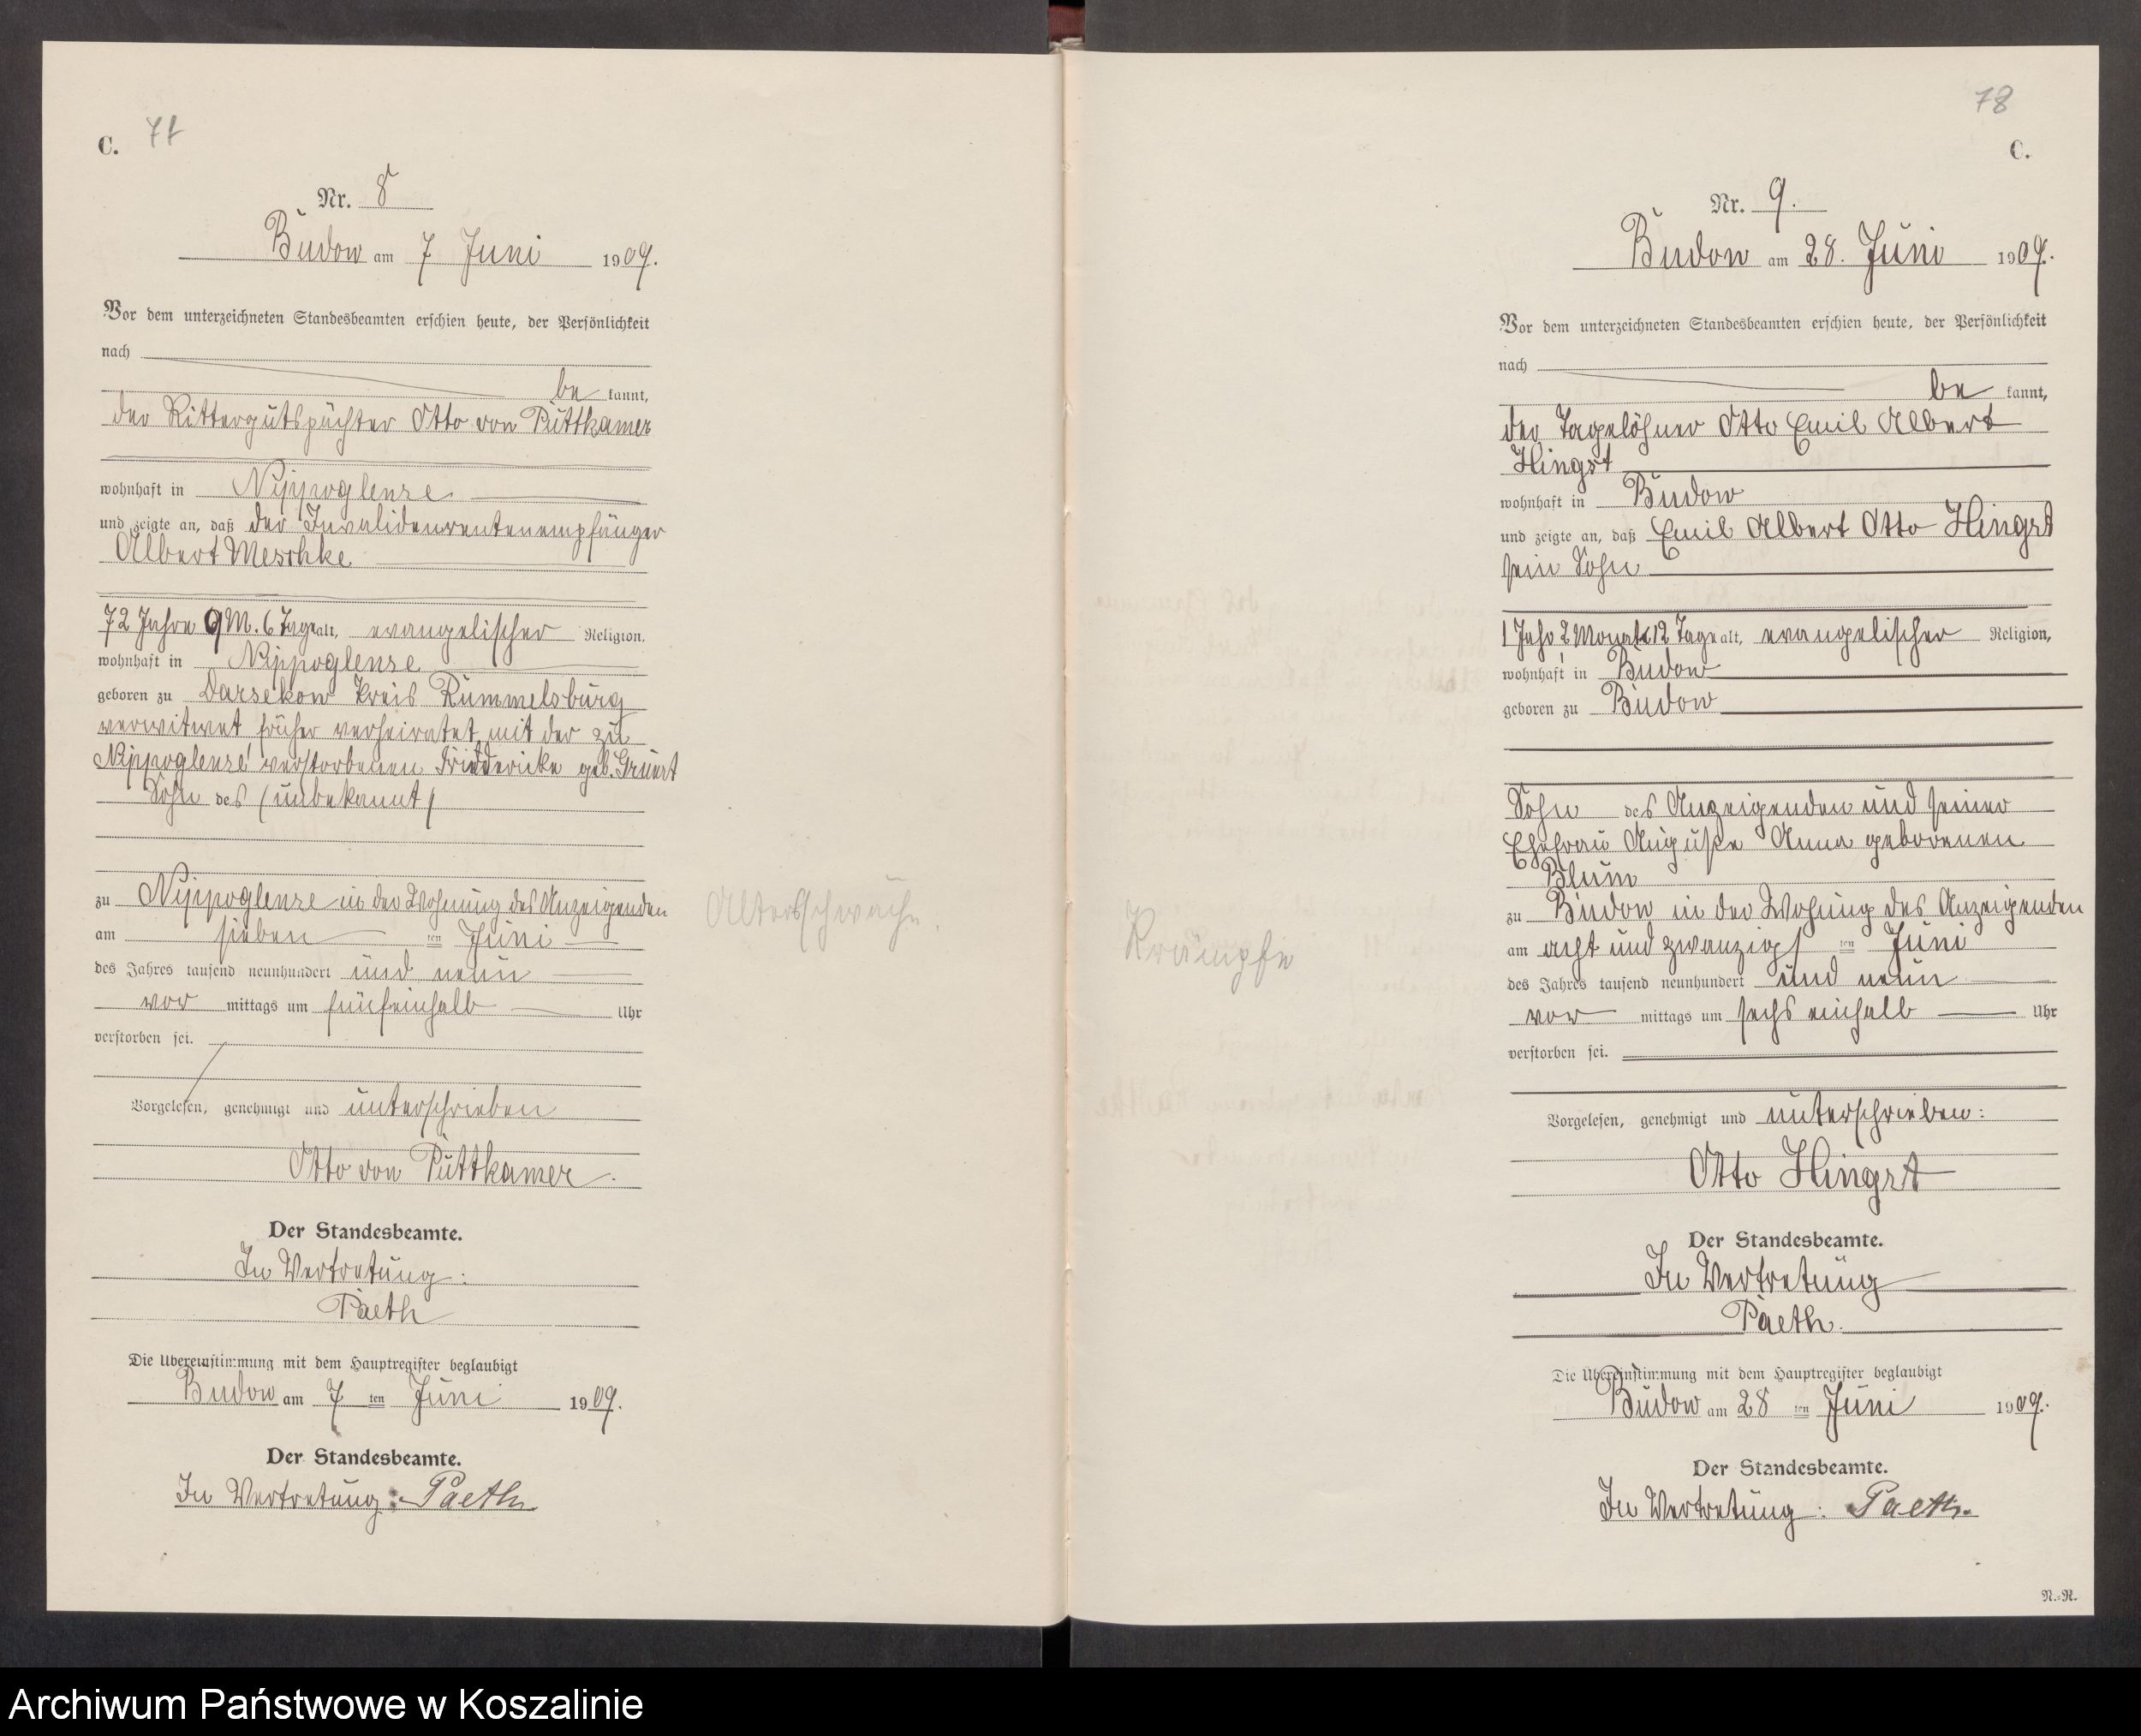 C.
Nr. 8
Budow am 7 Juni 1909.
Vor dem unterzeichneten Standesbeamten erschien heute, der Persönlichkeit
nach
be kannt,
der Rittergutspächter Otto von Puttkamer
wohnhaft in Nippoglense
und zeigte an, daß der Invalidenrentenempfänger
Albert Meschke
72 Jahre 9 M. 6 Tage alt, evangelischer Religion.
wohnhaft in Nippoglense
geboren zu Darsekow Kreis Rummelsburg
verwitwet früher verheiratet mit der zu
Nippoglense verstorbenen Friedericke geb. Gruert
Sohn des (unbekannt)
zu Nippoglense in der Wohnung des Anzeigenden
am sieben ten Juni
des Jahres tausend neunhundert und neun
vor mittags um fünfeinhalb Uhr
verstorben sei.
Vorgelesen, genehmigt und unterschrieben
Otto von Puttkamer.
Der Standesbeamte.
In Vertretung:
Paeth
Die Übereinstimmung mit dem Hauptregister beglaubigt
Budow am 7 ten Juni 1909.
Der Standesbeamte.
In Vertretung: Paeth
Altersschwäche.
78
C.
Nr. 9.
Budow am 28. Juni 1909.
Vor dem unterzeichneten Standesbeamten erschien heute, der Persönlichkeit
nach
be kannt,
der Tagelöhner Otto Emil Albert
Hingst
wohnhaft in Budow
und zeigte an, daß Emil Albert Otto Hingst
sein Sohn
1 Jahr 2 Monate 12 Tage alt, evangelischer Religion,
wohnhaft in Budow
geboren zu Budow
Sohn des Anzeigenden und seiner
Ehefrau Auguste Anna geborenen
Blum
zu Budow in der Wohnung des Anzeigenden
am acht und zwanzigs ten Juni
des Jahres tausend neunhundert und neun
vor mittags um sechs einhalb Uhr
verstorben sei.
Vorgelesen, genehmigt und unterschrieben:
Otto Hingst
Der Standesbeamte.
In Vertretung
Paeth.
Die Übereinstimmung mit dem Hauptregister beglaubigt
Budow am 28 ten Juni 1909.
Der Standesbeamte.
In Vertretung: Paeth.
Krämpfe
N.=R.
Archiwum Państwowe w Koszalinie